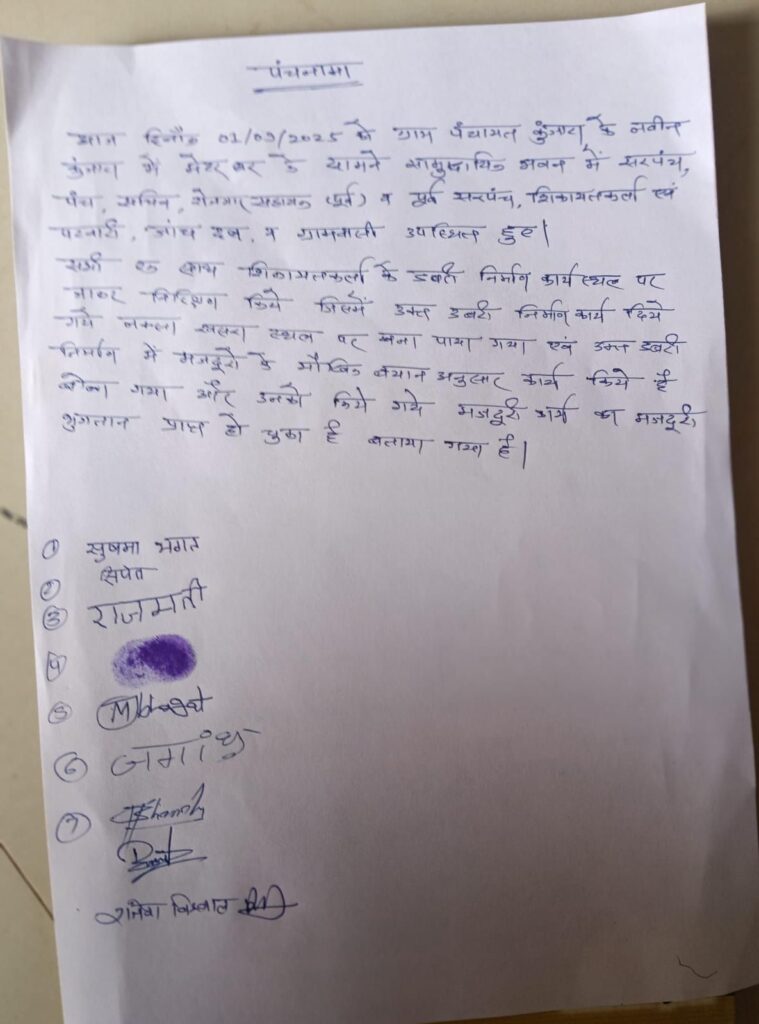 पंचनामा
आज दिनाँक 01/09/2025 को ग्राम पंचायत कुंजारा के नवीन
कुंजारा में के सामने सामुदायिक भवन में सरपंच,
पंच, सचिव, रोजगार सहायक (पूर्व) व पूर्व सरपंच, शिकायतकर्ता एवं
पटवारी, जांच दल, व ग्रामवासी उपस्थित हुए।
सभी एक साथ शिकायतकर्ता के डबरी निर्माण कार्य स्थल पर
जाकर निरिक्षण किये जिसमें उक्त डबरी निर्माण कार्य दिये
गये नक्शा खसरा स्थल पर बना पाया गया एवं उक्त डबरी
निर्माण में मजदूरो के मौखिक बयान अनुसार कार्य किये है
बोला गया और उनको किये गये मजदूरी कार्य का मजदूरी
भुगतान प्राप्त हो चुका है बताया गया है।
① सुषमा भगत
②
③ राजमती
④
⑤ Mbhagat
⑥
⑦